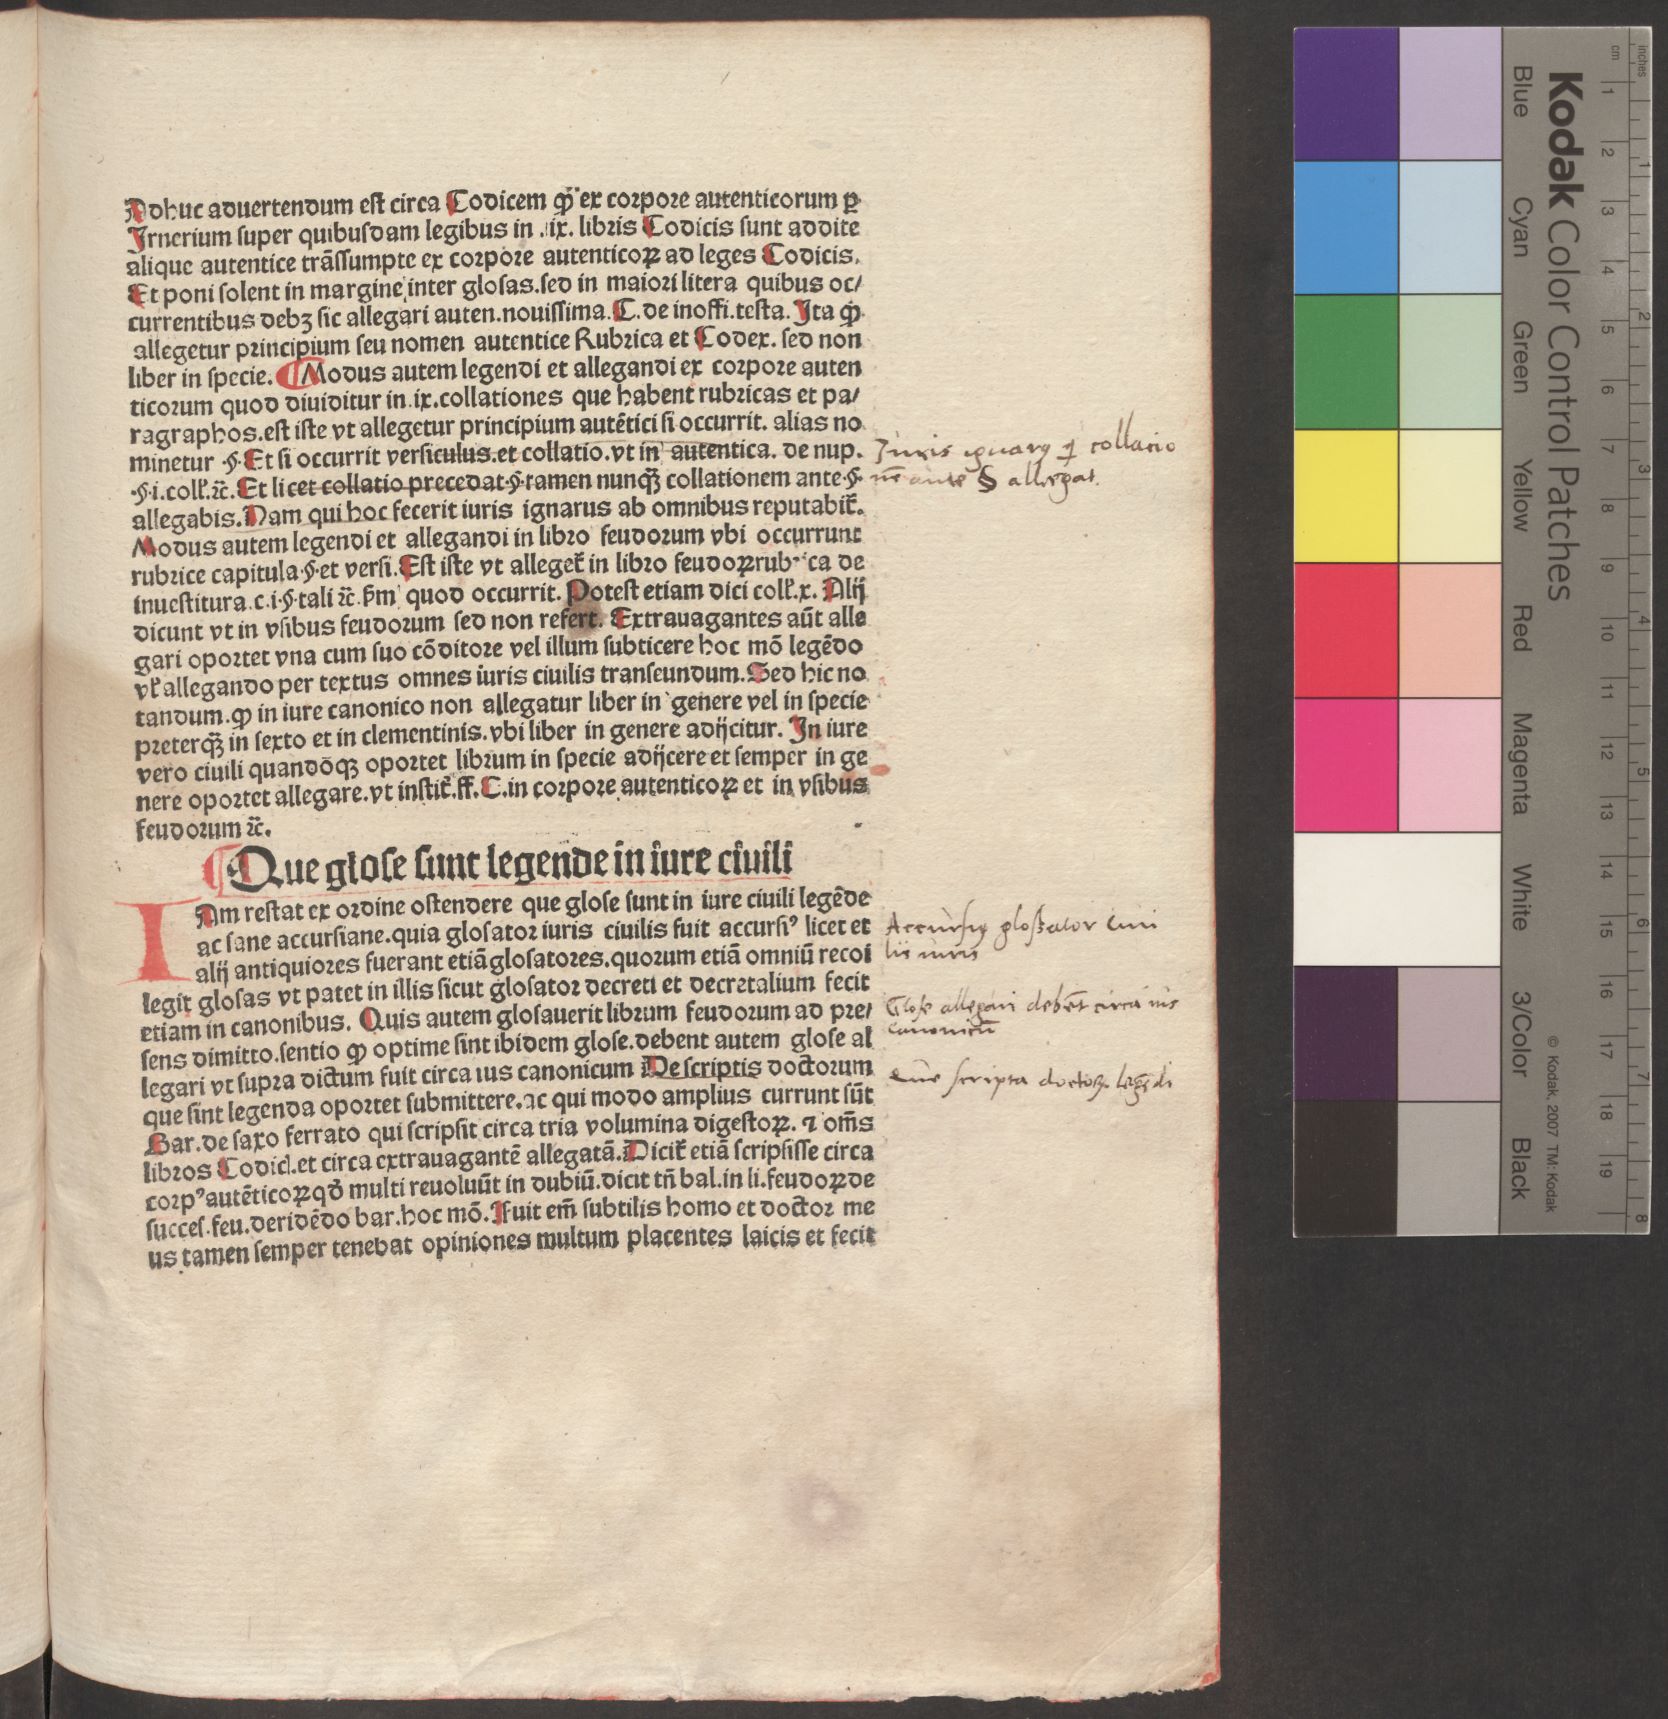 Adhuc aduertendum est circa Codicem ꝙ ex corpore autenticorum ꝑ
Irnerium super quibusdam legibus in .ix. libris Codicis sunt addite
alique autentice trāssumpte ex corpore autenticoꝝ ad leges Codicis.
Et poni solent in margine inter glosas.sed in maiori litera quibus oc/
currentibus debꝫ sic allegari auten.nouissima.C.de inoffi.testa. Ita ꝙ
allegetur principium seu nomen autentice Rubrica et Codex. sed non
liber in specie. ¶Modus autem legendi et allegandi ex corpore auten
ticorum quod diuiditur in.ix.collationes que habent rubricas et pa/
ragraphos.est iste vt allegetur principium autētici si occurrit. alias no
minetur .§.Et si occurrit versiculus.et collatio.vt in autentica. de nup.
.§.i.coll.ꝛc̄.Et licet collatio precedat.§.tamen nunqꝫ collationem ante.§.
allegabis.Nam qui hoc fecerit iuris ignarus ab omnibus reputabit̄.
Modus autem legendi et allegandi in libro feudorum vbi occurrunt
rubrice capitula.§.et versi.Est iste vt alleget̄ in libro feudoꝝ rubrica de
inuestitura.c.i.§.tali ꝛc̄.ꝓm quod occurrit. Potest etiam dici coll.x. Alij
dicunt vt in vsibus feudorum sed non refert. Extrauagantes aūt alle
gari oportet vna cum suo cōditore vel illum subticere hoc mō legēdo
vl̄ allegando per textus omnes iuris ciuilis transeundum.Sed hic no
tandum.ꝙ in iure canonico non allegatur liber in genere vel in specie
preterqꝫ in sexto et in clementinis.vbi liber in genere adijcitur. In iure
vero ciuili quandōqꝫ oportet librum in specie adijcere et semper in ge
nere oportet allegare.vt instit̄.ff.C.in corpore autenticoꝝ et in vsibus
feudorum ꝛc̄.
¶Que glose sunt legende in iure ciuili
IAm restat ex ordine ostendere que glose sunt in iure ciuili legēde
ac sane accursiane.quia glosator iuris ciuilis fuit accursiꝰ licet et
alij antiquiores fuerant etiā glosatores.quorum etiā omniū recol
legit glosas vt patet in illis sicut glosator decreti et decretalium fecit
etiam in canonibus. Quis autem glosauerit librum feudorum ad pre/
sens dimitto.sentio ꝙ optime sint ibidem glose.debent autem glose al
legari vt supra dictum fuit circa ius canonicum De scriptis doctorum
que sint legenda oportet submittere.ac qui modo amplius currunt sūt
Bar.de saxo ferrato qui scripsit circa tria volumina digestoꝝ. ⁊ om̄s
libros Codici.et circa extrauagantē allegatā.Dicit̄ etiā scripsisse circa
corpꝰ autēticoꝝ qđ multi reuoluūt in dubiū.dicit tn̄ bal.in li.feudoꝝ de
succes.feu.deridēdo bar.hoc mō.Fuit em̄ subtilis homo et doctor me
us tamen semper tenebat opiniones multum placentes laicis et fecit
Juris ignarꝰ ꝗ collacio
nē ante § allegat.
Accursiꝰ gloßator ciui
lis iuris
Glose allegari debēt circa ius
canonicū
Que scripta doctoꝝ legēdi
Kodak Color Control Patches
Blue
Cyan
Green
Yellow
Red
Magenta
White
3/Color
Black
© Kodak, 2007 TM: Kodak
inches
1
2
3
4
5
6
7
8
cm
1
2
3
4
5
6
7
8
9
10
11
12
13
14
15
16
17
18
19